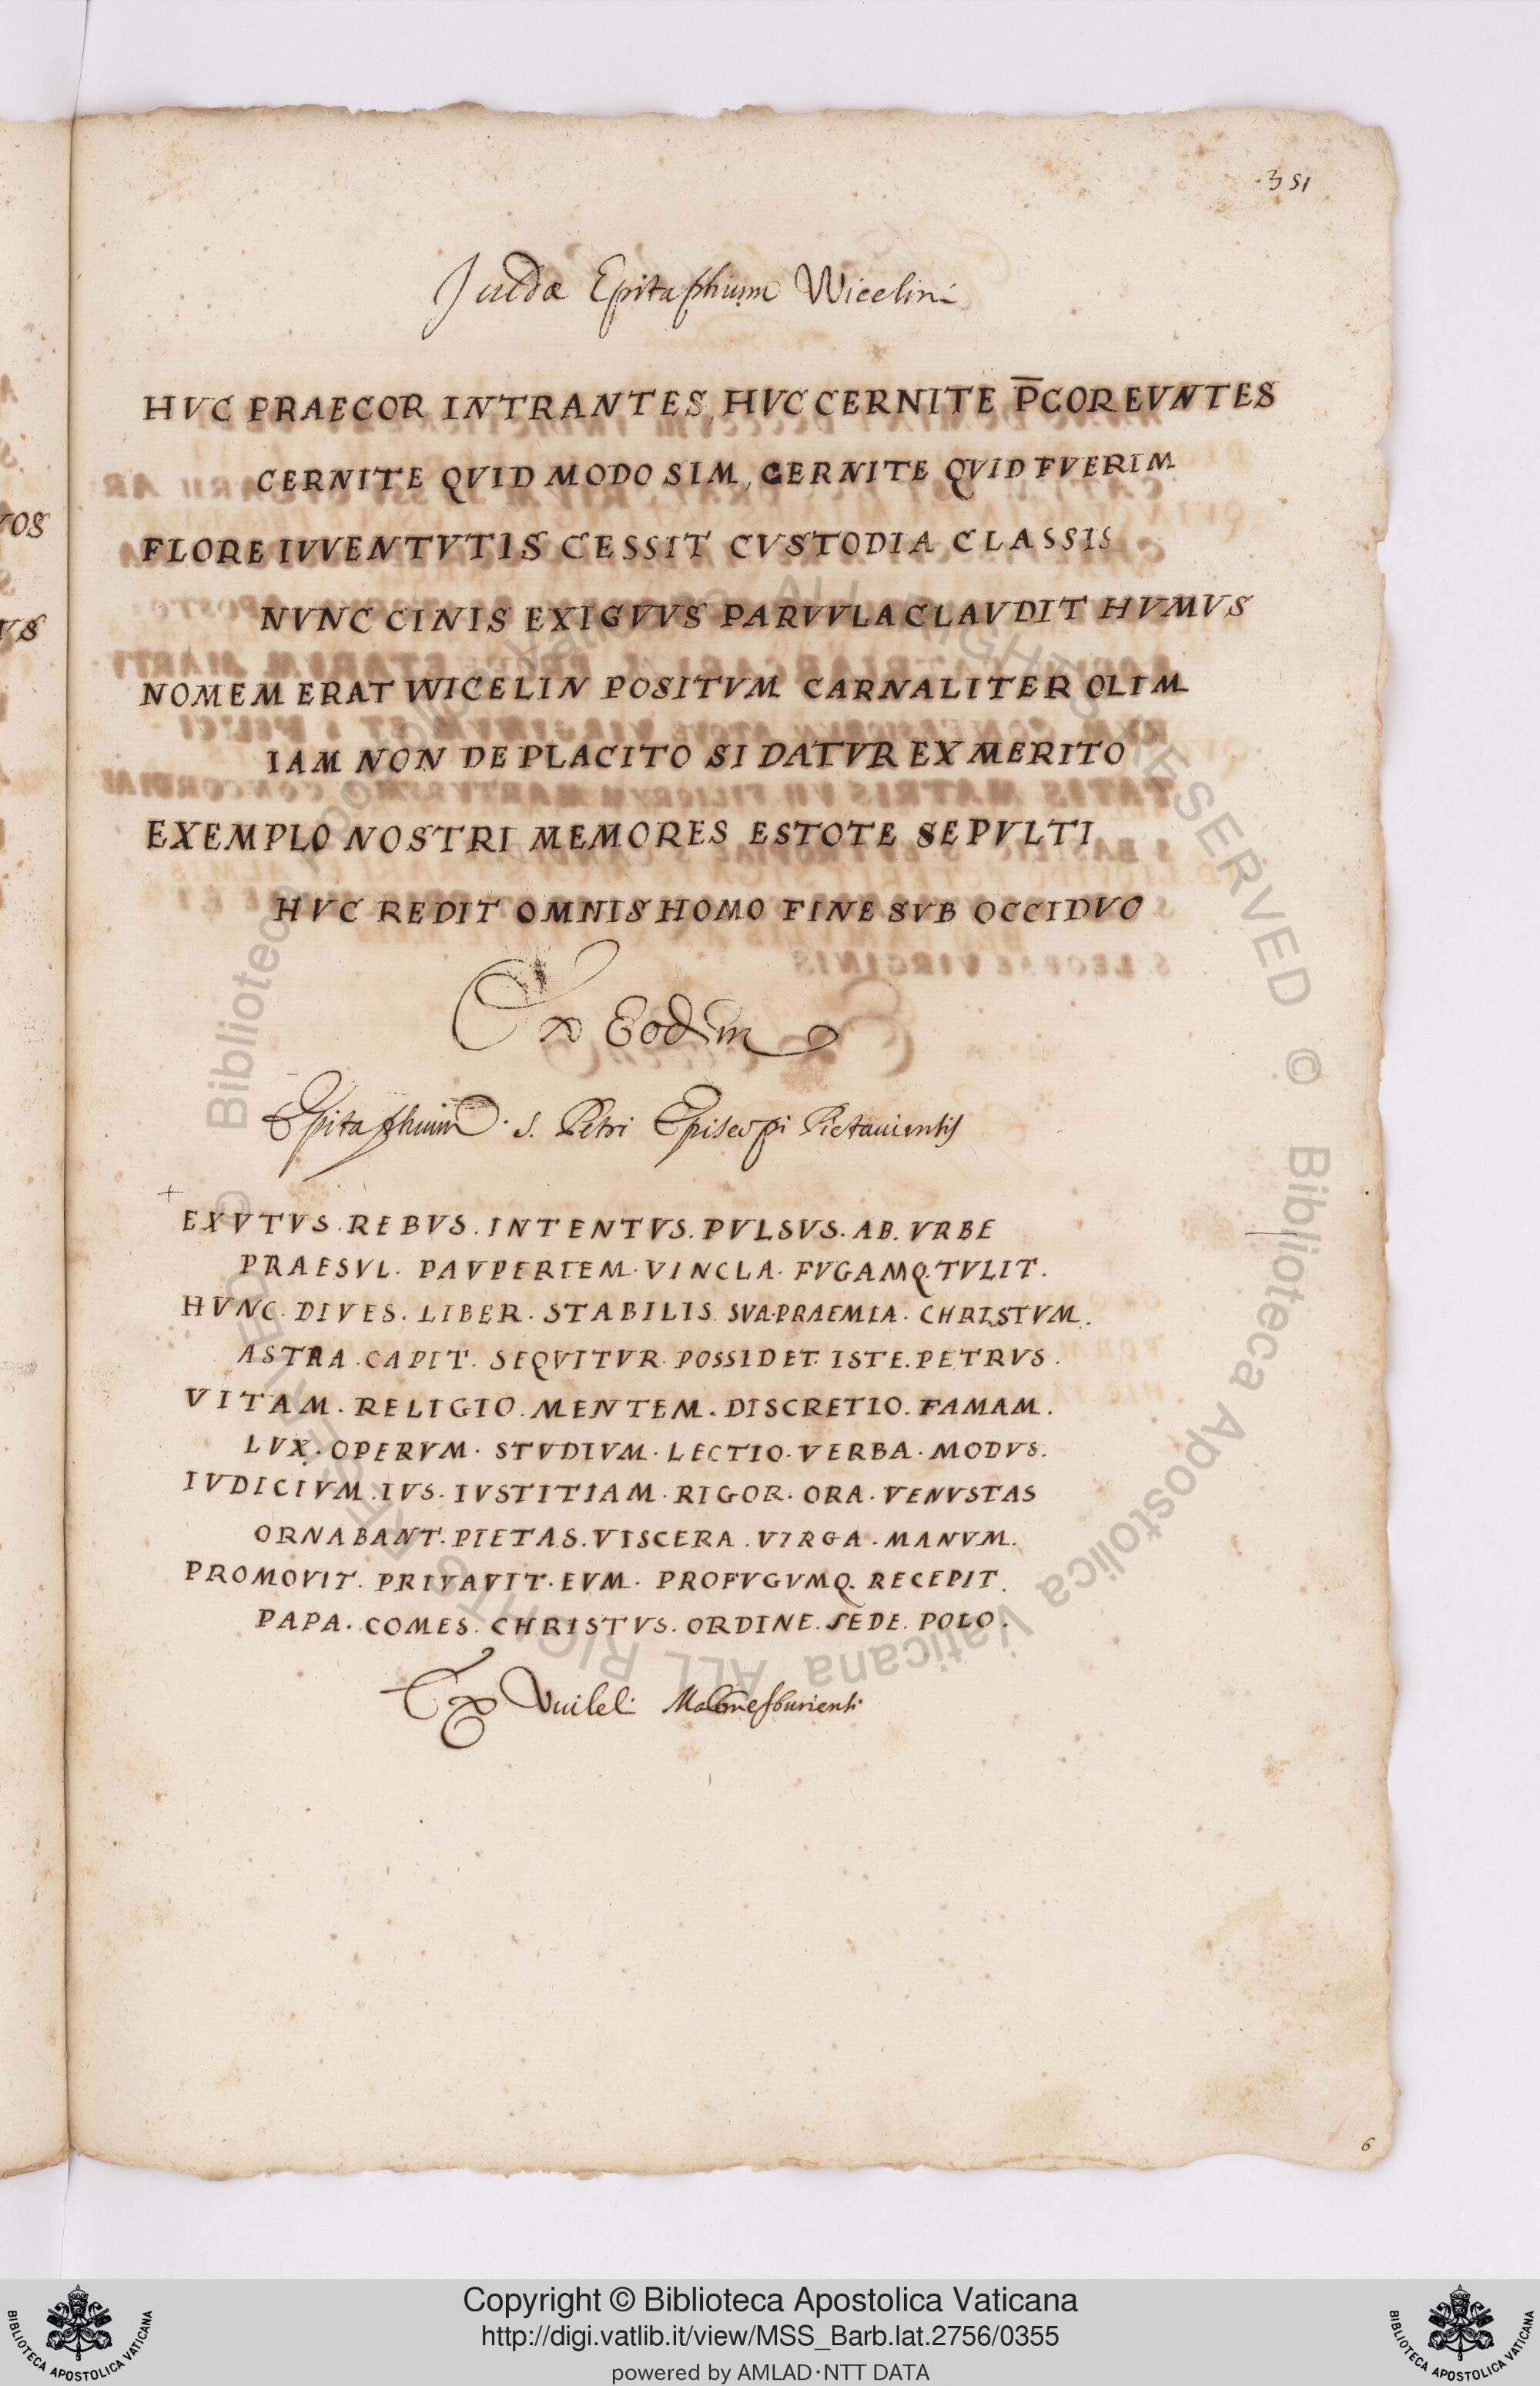 351
Juldæ Epitaphium Wicelini
HVC PRAECOR INTRANTES, HVC CERNITE P̅COR EVNTES
CERNITE QVID MODO SIM, CERNITE QVID FVERIM
FLORE IVVENTVTIS CESSIT CVSTODIA CLASSIS
NVNC CINIS EXIGVVS PARVVLA CLAVDIT HVMVS
NOMEM ERAT WICELIN POSITVM CARNALITER OLIM
IAM NON DE PLACITO SI DATVR EX MERITO
EXEMPLO NOSTRI MEMORES ESTOTE SEPVLTI
HVC REDIT OMNIS HOMO FINE SVB OCCIDVO
Ex Eodem
Epitaphium. S. Petri Episcopi Pictauientis
+
EXVTVS. REBVS. INTENTVS. PVLSVS. AB. VRBE
PRAESVL. PAVPERIEM. VINCLA. FVGAMQ. TVLIT.
HVNC. DIVES. LIBER. STABILIS. SVA. PRAEMIA. CHRISTVM.
ASTRA. CAPIT. SEQVITVR. POSSIDET. ISTE. PETRVS.
VITAM. RELIGIO. MENTEM. DISCRETIO. FAMAM.
LVX. OPERVM. STVDIVM. LECTIO. VERBA. MODVS.
IVDICIVM. IVS. IVSTITIAM. RIGOR. ORA. VENVSTAS
ORNABANT. PIETAS. VISCERA. VIRGA. MANVM.
PROMOVIT. PRIVAVIT. EVM. PROFVGVMQ. RECEPIT.
PAPA. COMES. CHRISTVS. ORDINE. SEDE. POLO.
Ex Vuilel. Malmesburienti
6
© Biblioteca Apostolica Vaticana ALL RIGHTS RESERVED © Biblioteca Apostolica Vaticana ALL RIGHTS RESERVED
Copyright © Biblioteca Apostolica Vaticana
http://digi.vatlib.it/view/MSS_Barb.lat.2756/0355
powered by AMLAD·NTT DATA
BIBLIOTECA APOSTOLICA VATICANA
BIBLIOTECA APOSTOLICA VATICANA